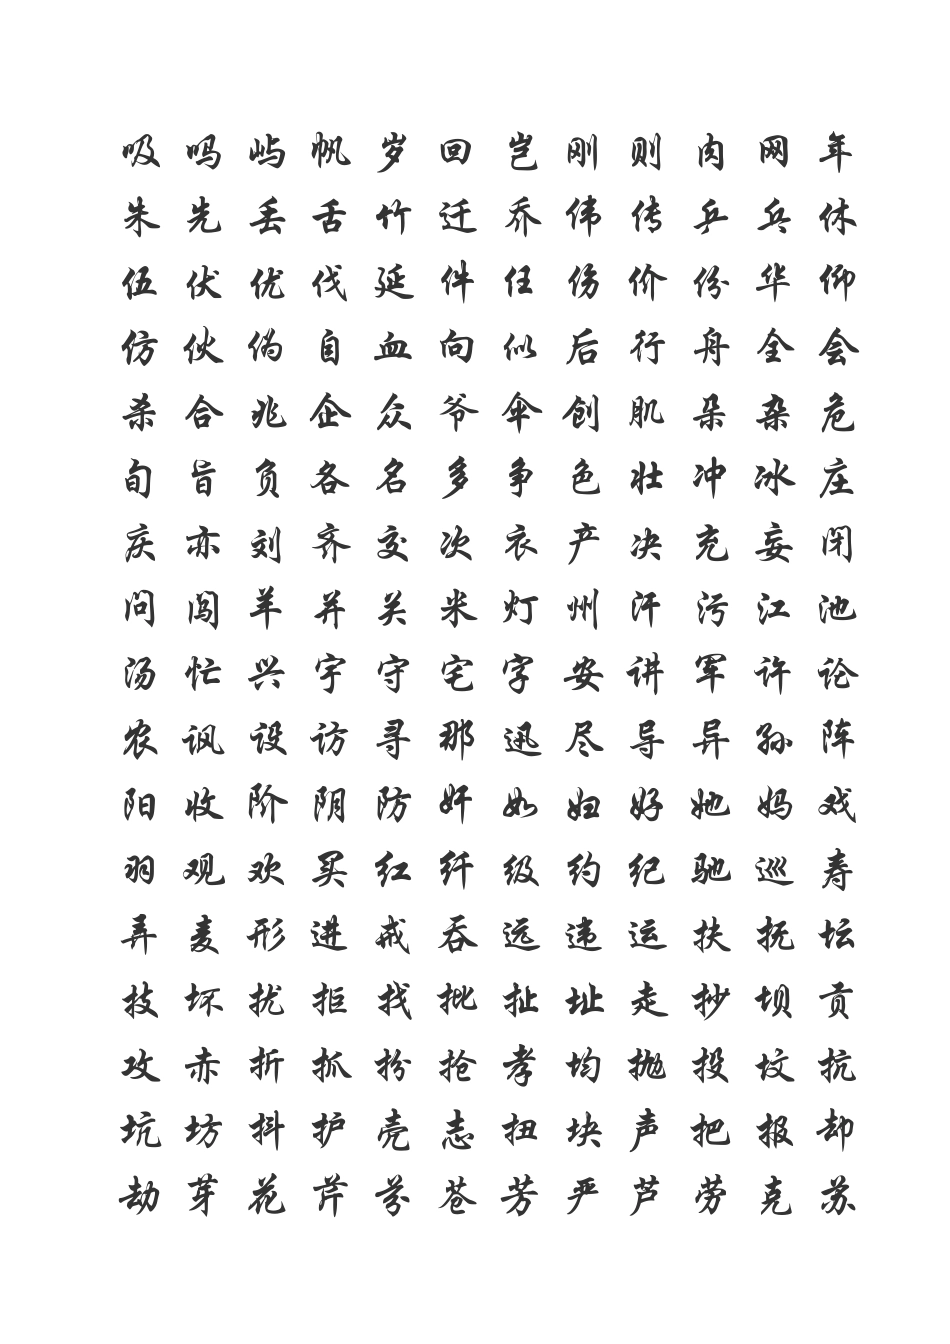 吸 吗 屿 帆 岁 回 岂 刚 则 肉 网 年
朱 先 丢 舌 竹 迁 乔 伟 传 乒 乓 休
伍 伏 优 伐 延 件 任 伤 价 份 华 仰
仿 伙 伪 自 血 向 似 后 行 舟 全 会
杀 合 兆 企 众 爷 伞 创 肌 朵 杂 危
旬 旨 负 各 名 多 争 色 壮 冲 冰 庄
庆 亦 刘 齐 交 次 衣 产 决 充 妄 闭
问 闯 羊 并 关 米 灯 州 汗 污 江 池
汤 忙 兴 宇 守 宅 字 安 讲 军 许 论
农 讽 设 访 寻 那 迅 尽 导 异 孙 阵
阳 收 阶 阴 防 奸 如 妇 好 她 妈 戏
羽 观 欢 买 红 纤 级 约 纪 驰 巡 寿
弄 麦 形 进 戒 吞 远 违 运 扶 抚 坛
技 坏 扰 拒 找 批 扯 址 走 抄 坝 贡
攻 赤 折 抓 扮 抢 孝 均 抛 投 坟 抗
坑 坊 抖 护 壳 志 扭 块 声 把 报 却
劫 芽 花 芹 芬 苍 芳 严 芦 劳 克 苏